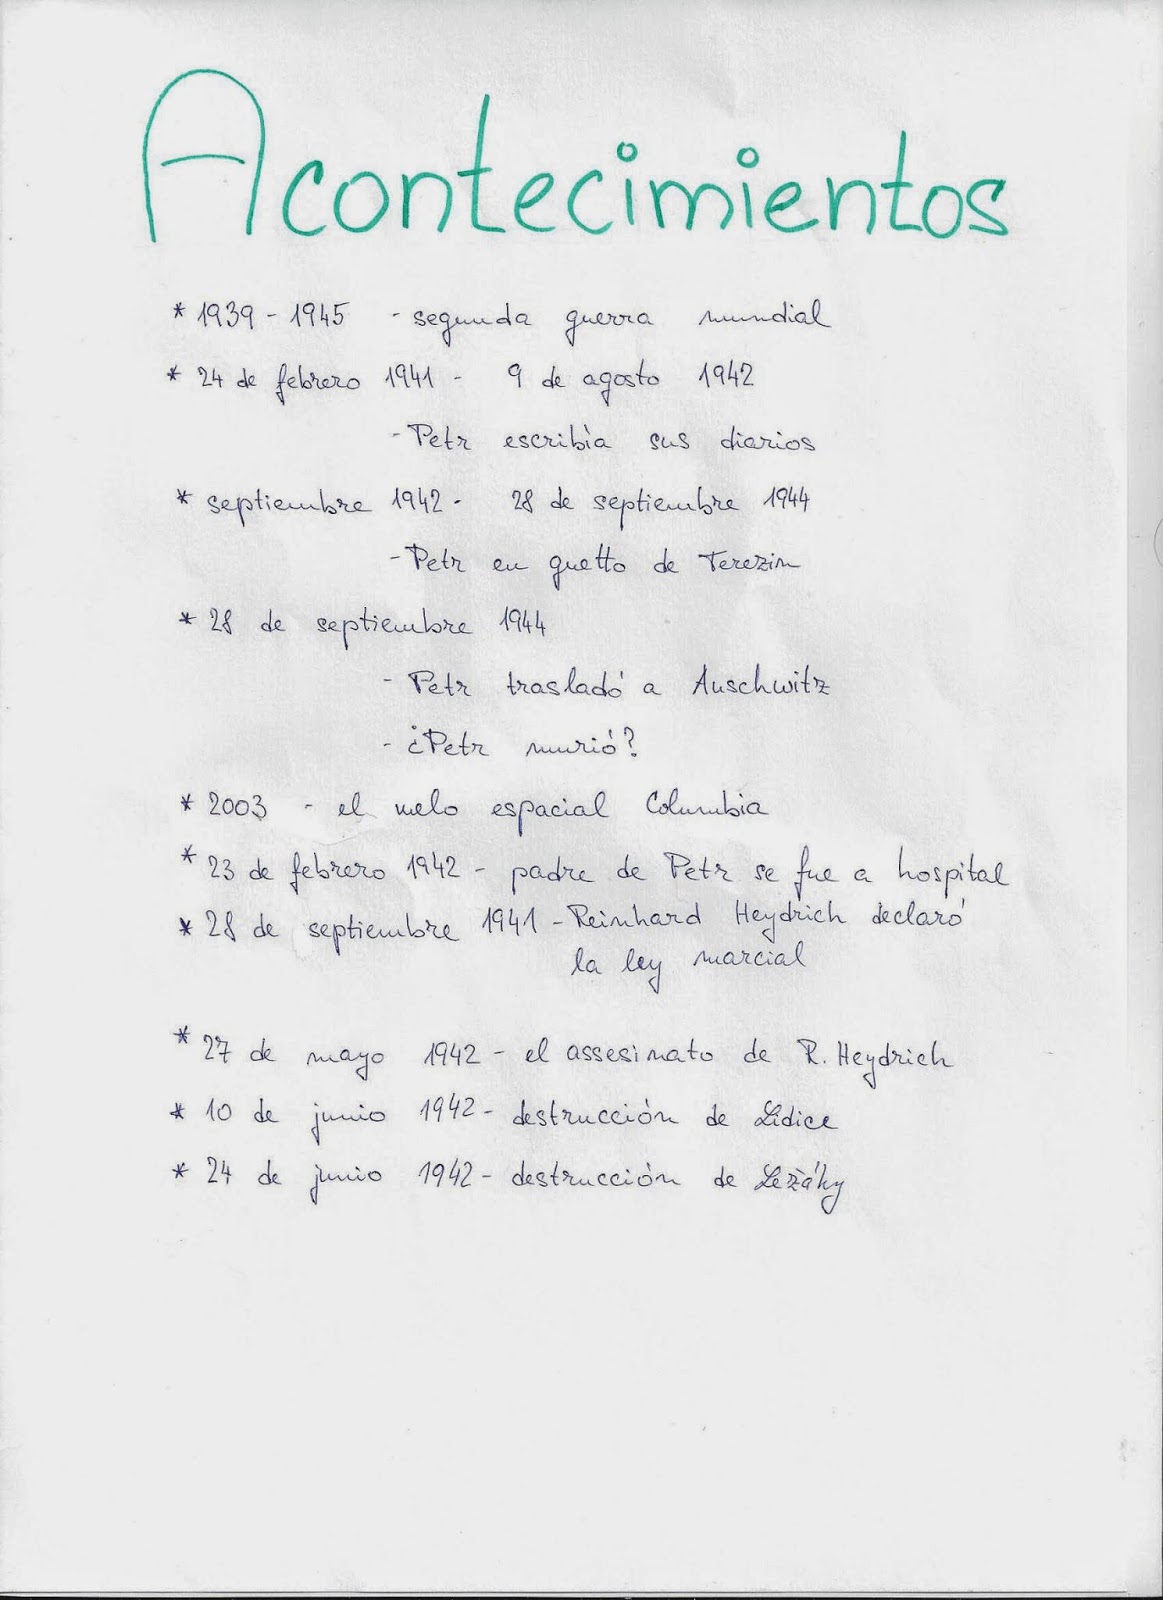 Acontecimientos
* 1939 - 1945 - segunda guerra mundial
* 24 de febrero 1941 - 9 de agosto 1942
- Petr escribìa sus diarios
* septiembre 1942 - 28 de septiembre 1944
- Petr en guetto de Terezin
* 28 de septiembre 1944
- Petr trasladó a Auschwitz
- ¿Petr murió?
* 2003 - el vuelo espacial Columbia
* 23 de febrero 1942 - padre de Petr se fue a hospital
* 28 de septiembre 1941 - Reinhard Heydrich declaró
la ley marcial
* 27 de mayo 1942 - el assesinato de R. Heydrich
* 10 de junio 1942 - destrucción de Lidice
* 24 de junio 1942 - destrucción de Ležáky